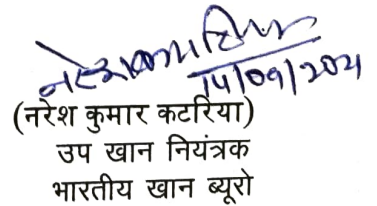 14/09/2021
(नरेश कुमार कटरिया)
उप खान नियंत्रक
भारतीय खान ब्यूरो